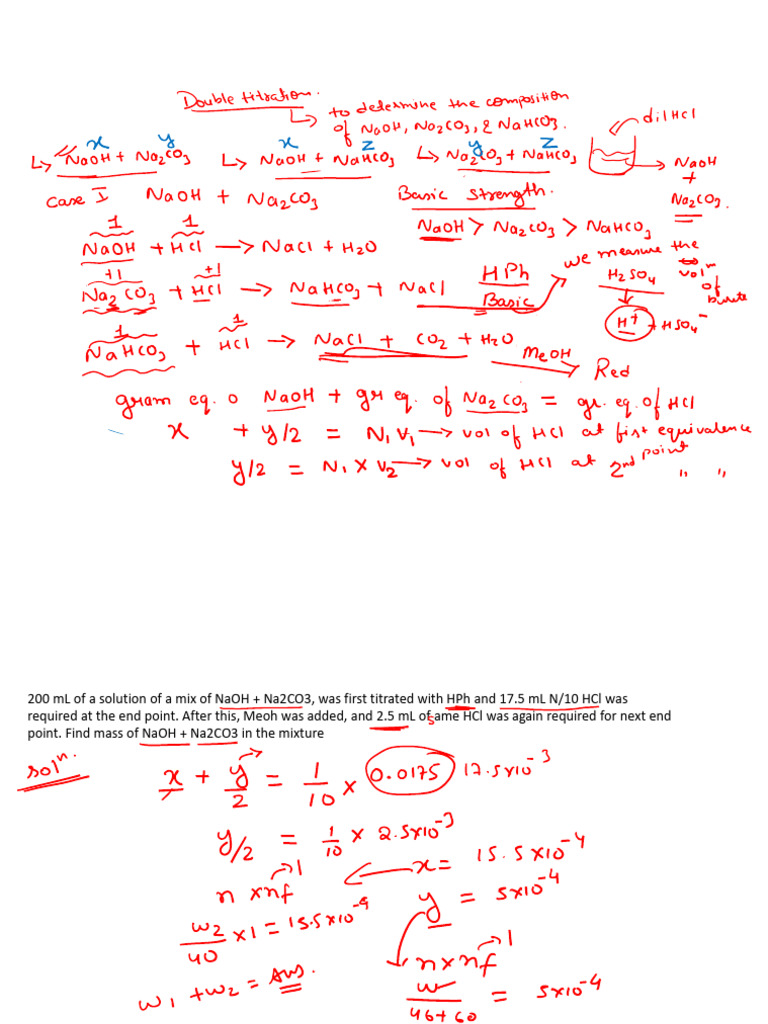 Double titration.
↳ to determine the composition
of NaOH, Na2CO3, & NaHCO3.
dil HCl
x y x z y z
↳ NaOH + Na2CO3 ↳ NaOH + NaHCO3 ↳ Na2CO3 + NaHCO3
→ NaOH
+
Na2CO3.
Case I NaOH + Na2CO3 Basic Strength.
NaOH > Na2CO3 > NaHCO3
1 1
NaOH + HCl → NaCl + H2O
we measure the
voln of burete
+1 +1
Na2CO3 + HCl → NaHCO3 + NaCl HPh
Basic
H2SO4
↓
H+ + HSO4-
1 1
NaHCO3 + HCl → NaCl + CO2 + H2O MeOH → Red
gram eq. o NaOH + gr eq. of Na2CO3 = gr. eq. of HCl
x + y/2 = N1V1 → vol of HCl at first equivalence point
y/2 = N1 x V2 → vol of HCl at 2nd " "
200 mL of a solution of a mix of NaOH + Na2CO3, was first titrated with HPh and 17.5 mL N/10 HCl was
required at the end point. After this, Meoh was added, and 2.5 mL of same HCl was again required for next end
point. Find mass of NaOH + Na2CO3 in the mixture
soln.
x + y/2 = 1/10 x 0.0175 17.5x10-3
y/2 = 1/10 x 2.5x10-3
x = 15.5x10-4
n x nf → 1
y = 5x10-4
w2/40 x 1 = 15.5x10-4
n x nf → 1
w1 + w2 = Ans.
w/46+60 = 5x10-4